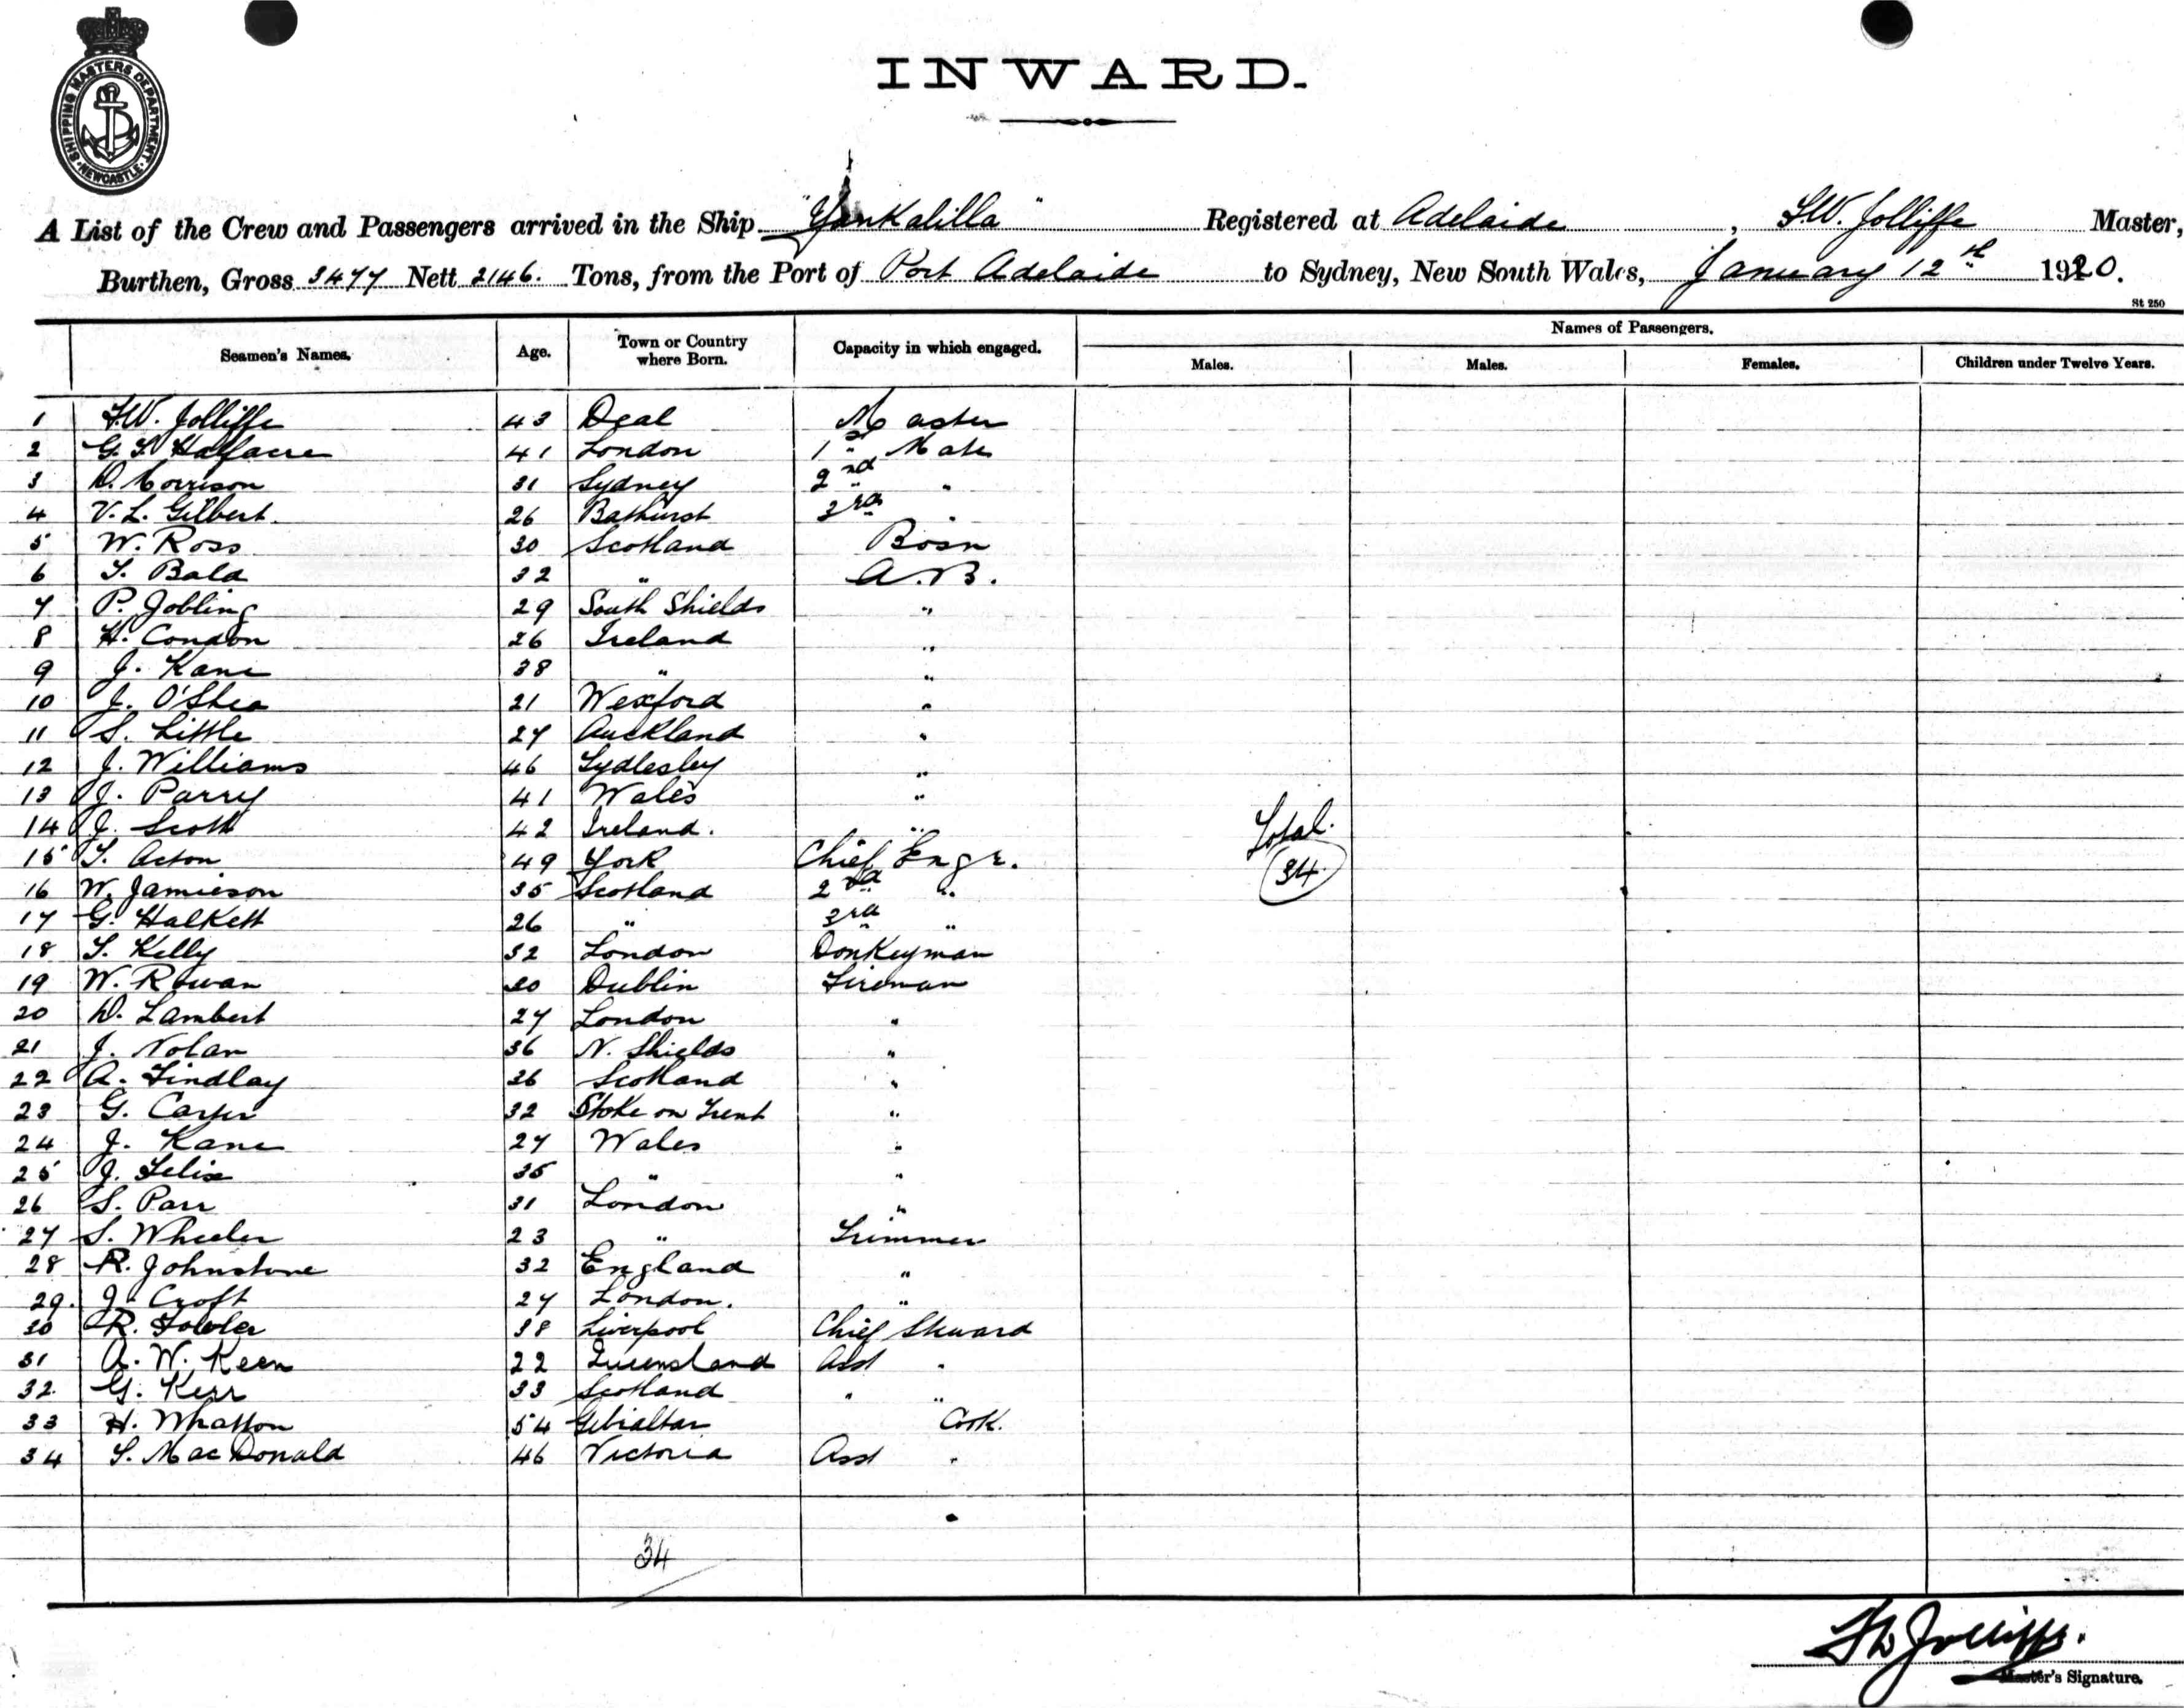 SHIPPING MASTERS DEPARTMENT NEWCASTLE
INWARD.
A List of the Crew and Passengers arrived in the Ship "Yankalilla" Registered at Adelaide, F.W. Jolliffe Master,
Burthen, Gross 3477 Nett 2146. Tons, from the Port of Port Adelaide to Sydney, New South Wales, January 12th 1920.
St 250
Seamen's Names. Age. Town or Country where Born. Capacity in which engaged. Names of Passengers.
Males. Males. Females. Children under Twelve Years.
1 F.W. Jolliffe 43 Deal Master
2 G. Halfacre 41 London 1st Mate
3 D. Morrison 31 Sydney 2nd "
4 V. L. Gilbert. 26 Bathurst 3rd "
5 W. Ross 30 Scotland Bosn
6 T. Bald 32 " A.B.
7 P. Jobling 29 South Shields "
8 H. Condon 26 Ireland "
9 J. Kane 38 " "
10 J. O'Shea 21 Wexford "
11 S. Little 27 Auckland "
12 J. Williams 46 Lydlesley "
13 J. Parry 41 Wales "
14 J. Scott 42 Ireland. "
15 T. Acton 49 York Chief Engr.
16 W. Jamieson 35 Scotland 2nd "
17 G. Halkett 26 " 3rd "
18 T. Kelly 32 London Donkeyman
19 W. Rowan 20 Dublin Fireman
20 D. Lambert 27 London "
21 J. Nolan 36 N. Shields "
22 A. Findlay 26 Scotland "
23 G. Carter 32 Stoke on Trent "
24 J. Kane 27 Wales "
25 J. Felix 35 " "
26 S. Parr 31 London "
27 S. Wheeler 23 " Trimmer
28 R. Johnstone 32 England "
29. J. Croft 27 London. "
30 R. Fowler 38 Liverpool Chief Steward
31 A. W. Keen 22 Queensland Asst "
32. G. Kerr 33 Scotland " "
33 H. Whatton 54 Gibraltar Cook.
34 S. MacDonald 46 Victoria Asst "
Total.
34
34
F.W. Jolliffe.
Master's Signature.